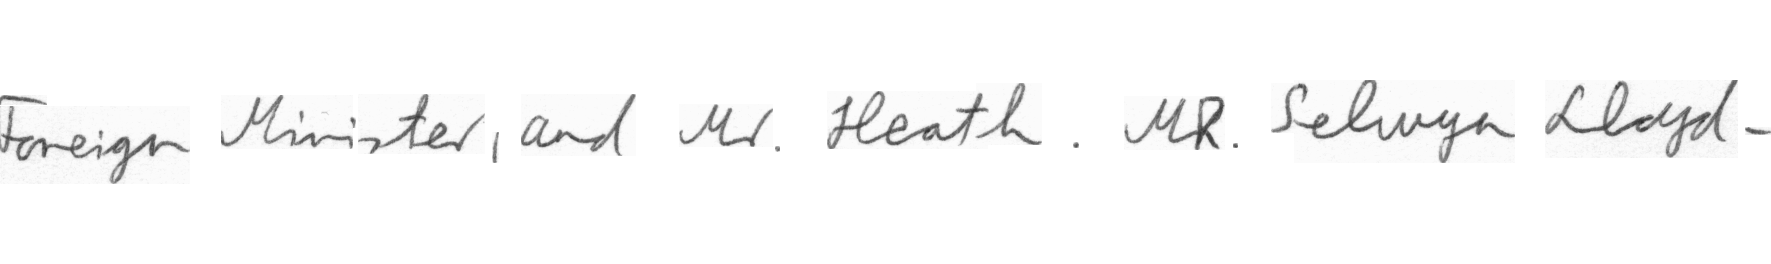 Foreign Minister, and Mr. Heath. MR. Selwyn Lloyd-